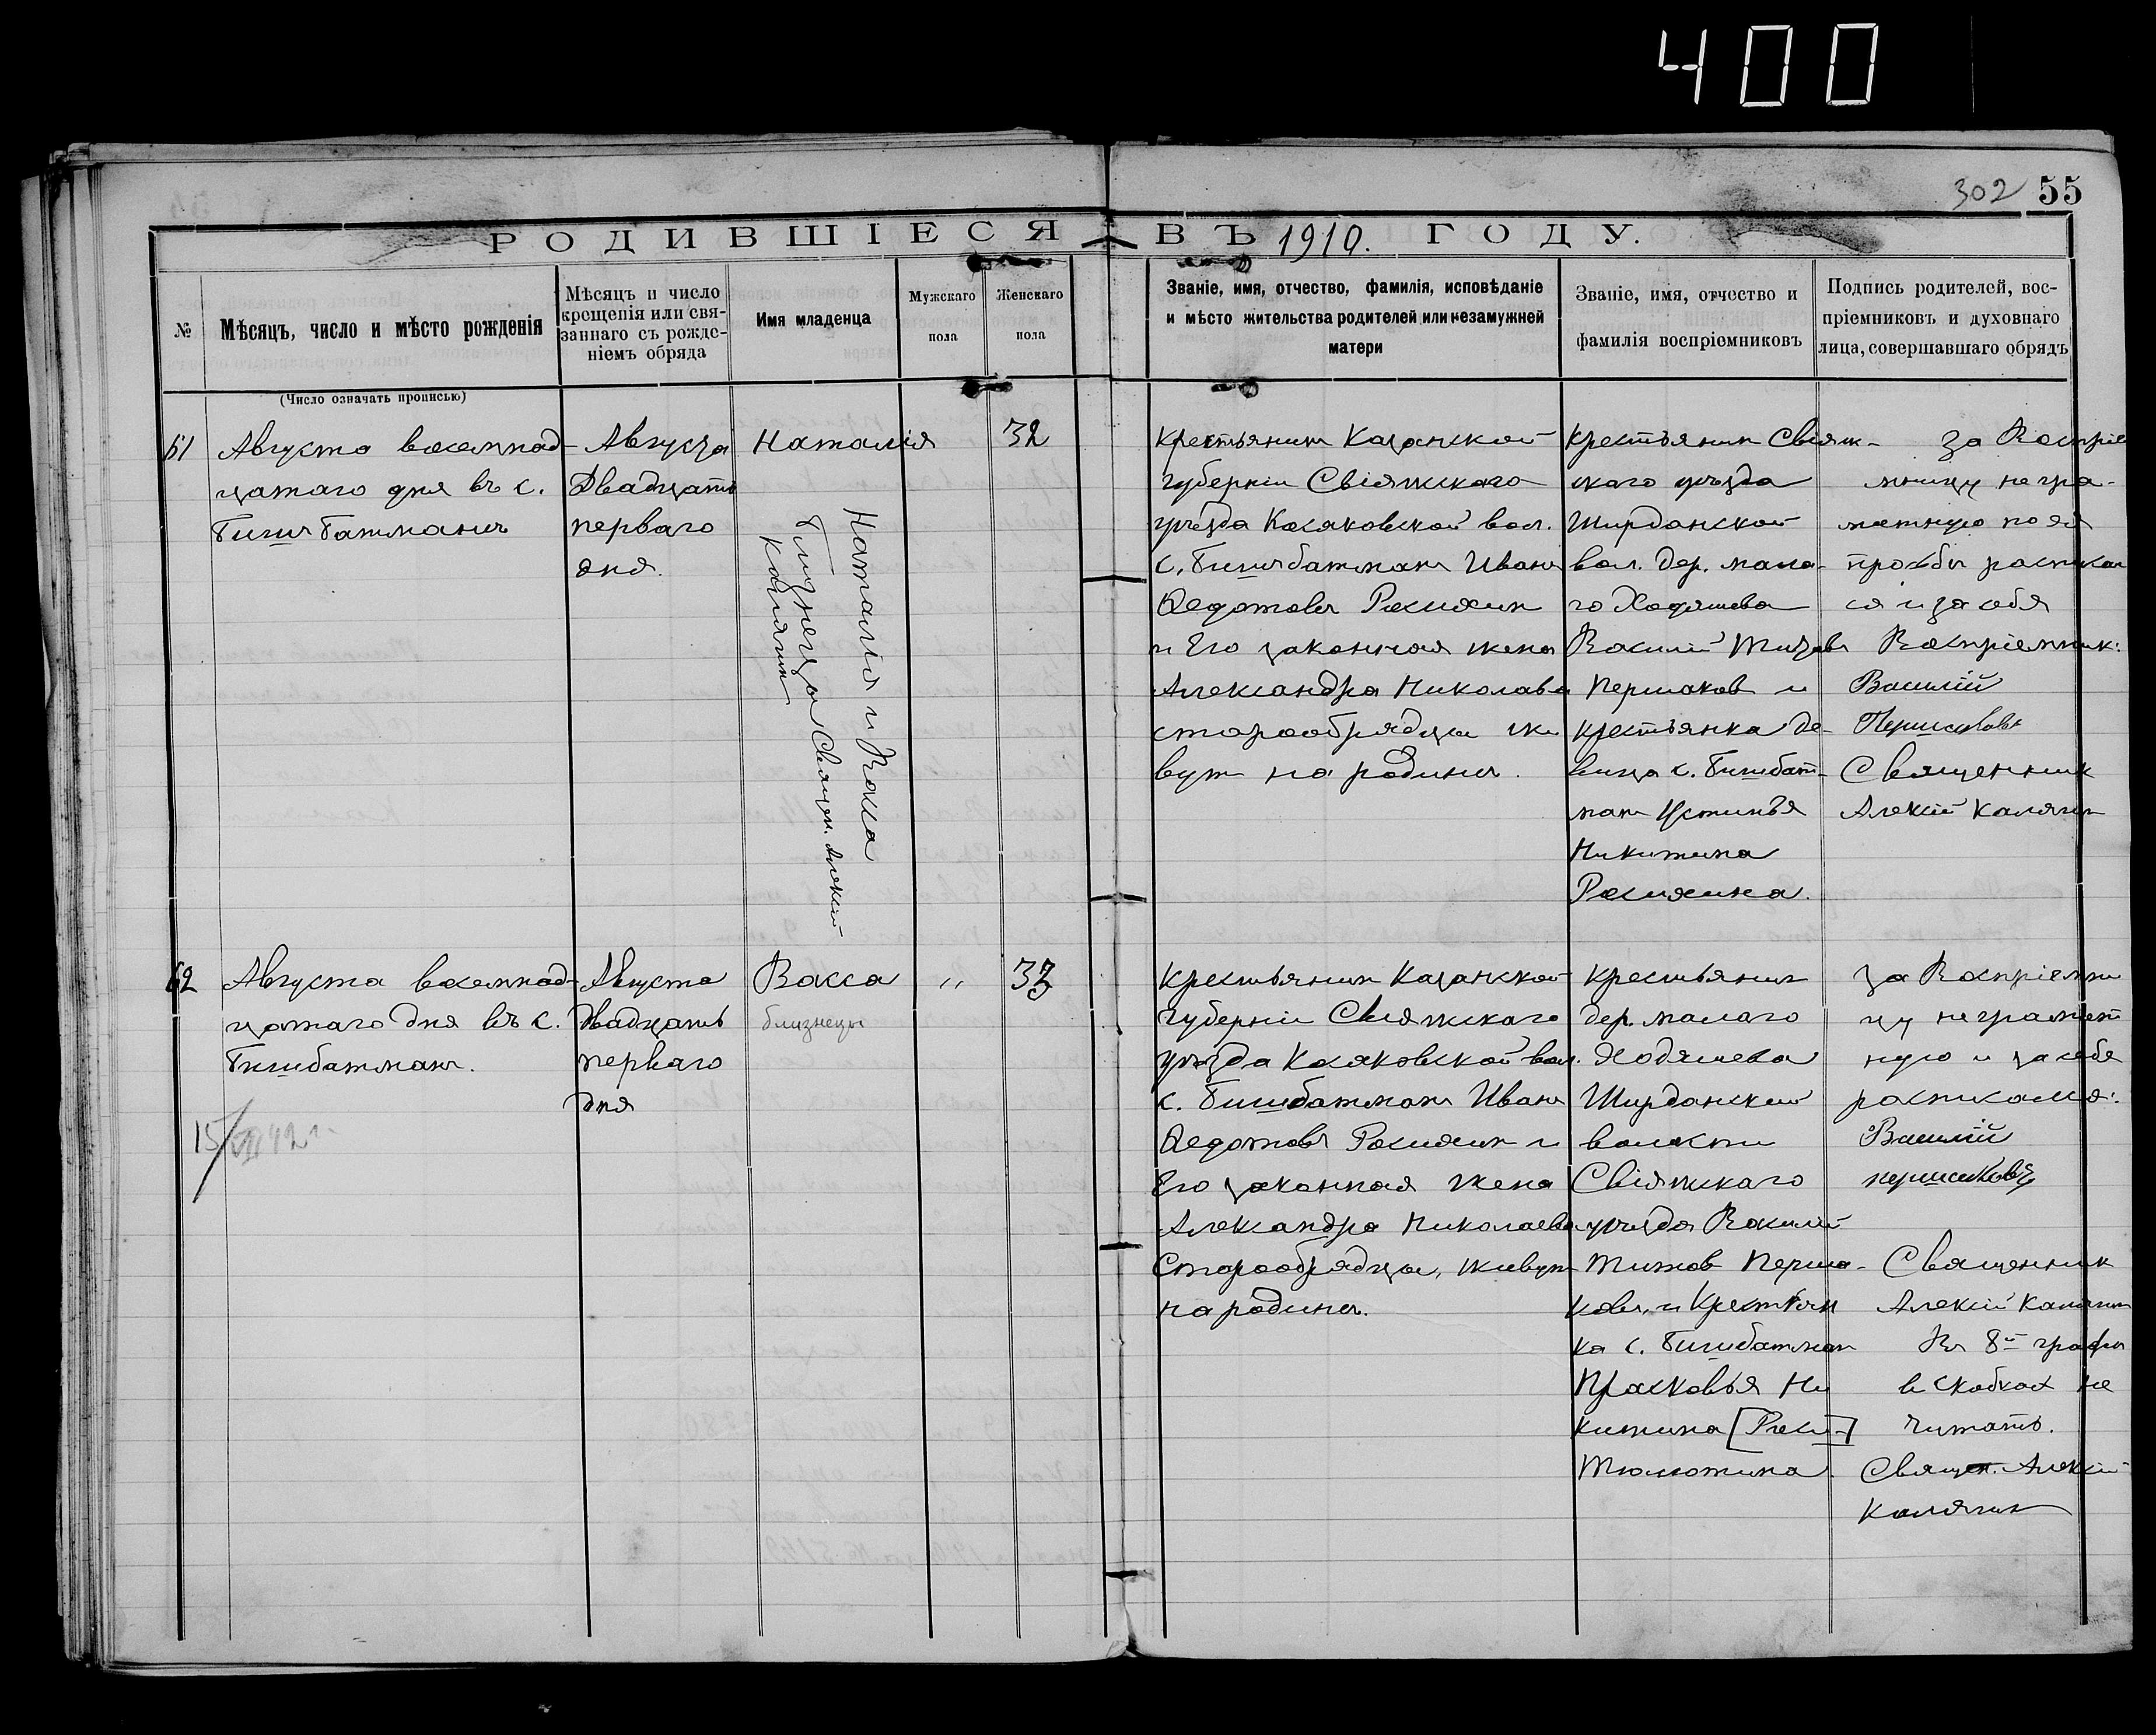 400
302 55
РОДИВШІЕСЯ ВЪ 1910. ГОДУ.
№
Мѣсяцъ, число и мѣсто рожденія
(Число означать прописью)
Мѣсяцъ и число
крещенія или свя-
заннаго съ рожде-
ніемъ обряда
Имя младенца
Мужскаго
пола
Женскаго
пола
Званіе, имя, отчество, фамилія, исповѣданіе
и мѣсто жительства родителей или незамужней
матери
Званіе, имя, отчество и
фамилія воспріемниковъ
Подпись родителей, вос-
пріемниковъ и духовнаго
лица, совершавшаго обрядъ
61
Августа восемнад-
цатаго дня въ с.
Бишбатманъ
Августа
Двадцать
перваго
дня.
Наталія
Наталія и Васса
близнецы Священ. Алексій
Калягин
32
Крестьянин Казанской
губерніи Свіяжскаго
уѣзда Косяковской вол.
с. Бишбатман Иванъ
Ѳедотовъ
и Его законная жена
Александра Николаева
старообрядцы жи
вут на родинѣ.
Крестьянин Свіяж-
скаго уѣзда
Ширданской
вол. дер. мала-
го Ходяшева
Василій Титовъ
Першаков и
крестьянка де-
вица с. Бишбат-
ман Устинья
Никитина
за Воспріе
мницу негра-
мотную по ея
прозьбы росписал
ся и за себя
Воспріемник:
Василій
Першаковъ
Священник
Алексій Калягин
62
Августа восемнад-
цатаго дня въ с.
Бишбатман.
15/VII 42 г.
Августа
двадцать
перваго
дня
Васса
близнецы
"
33
Крестьянин Казанской
губерніи Свіяжскаго
уѣзда Косяковской вол.
с. Бишбатман Иван
Ѳедотовъ и
Его законная жена
Александра Николаева
Старообрядцы, живут
на родинѣ.
Крестьянин
дер. малаго
Ходяшева
Ширданской
волости
Свіяжскаго
уѣзда Василій
Титов Перша-
ковъ, и Крестьян
ка с. Бишбатман
Прасковья Ни
китина
Тюлютина.
за Воспріемни
цу неграмот
ную и за себя
росписался:
Василій
Першаковъ
Священник
Алексій Калягин
Въ 8й графѣ
в скобках не
читать.
Священ. Алексій
Калягин